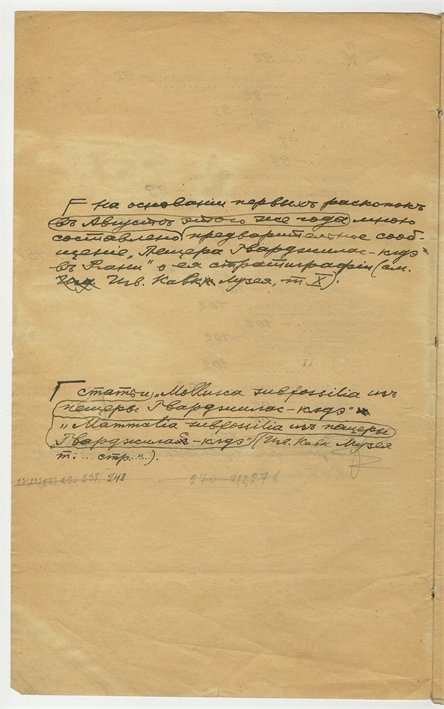 На основаніи первыхъ раскопокъ
въ Августѣ этого же года мною
составлено предварительное сооб-
щеніе „Пещера Гварджилас-клдэ"
въ Ргани" о ея стратиграфіи (см.
Изв. Кавк. Музея, т. X).
Статьи, „Mollusca subfossilia изъ
пещеры Гварджилас-клдэ"
„Mammalia subfossilia изъ пещеры
Гварджилас-клдэ" (Изв. Кавк. Музея
т. ... стр. ...).
248